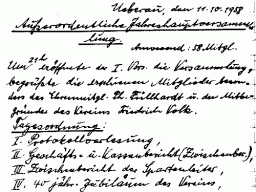 Ueberau, den 11.10.1958
Außerordentliche Jahreshauptversamm-
lung.
Anwesend: 58. Mitgl.
Um 21h eröffnete der I. Vors. die Versammlung,
begrüßte die erschienen Mitglieder beson-
ders das Ehrenmitgl. Ph. Füllhardt u. den Mitbe-
gründer des Vereins Friedrich Volk.
Tagesordnung:
I. Protokollverlesung,
II. Geschäfts- u. Kassenbericht (Zwischenber.),
III. Zwischenbericht des Spartenleiter,
IV. 40 jähr. Jubiläum des Vereins,